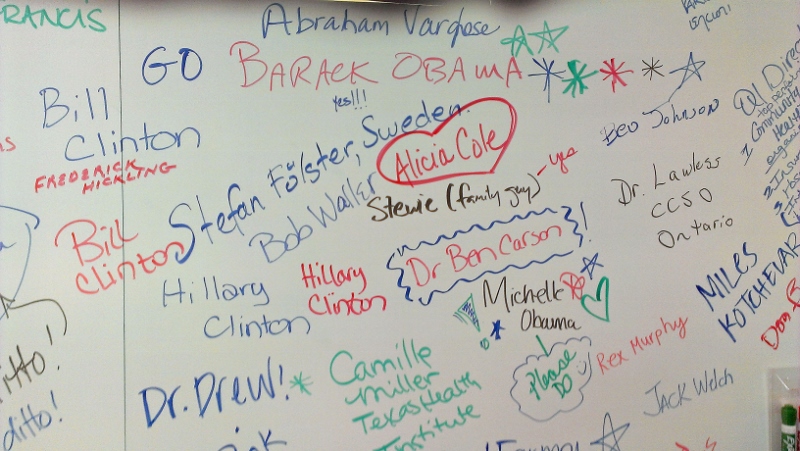 RANCIS
Abraham Varghese
GO BARACK OBAMA
yes!!!
Bill
Clinton
FREDERICK
HICKLING
Stefan Fölster, Sweden
Alicia Cole
Bev Johnson
QI Direct
top person
Community
Health
Bob Waller
Stewie (family guy) - yes
Dr. Lawless
CCSO
Ontario
Bill
Clinton
Dr Ben Carson!
Hillary
Clinton
Hillary
Clinton
Michelle
Obama
Please
DO
MILES
KOTCHEVAR
Rex Murphy
Dr. DREW!
Camille
miller
Texas Health
Institute
Jack Welch
ditto!
ditto!